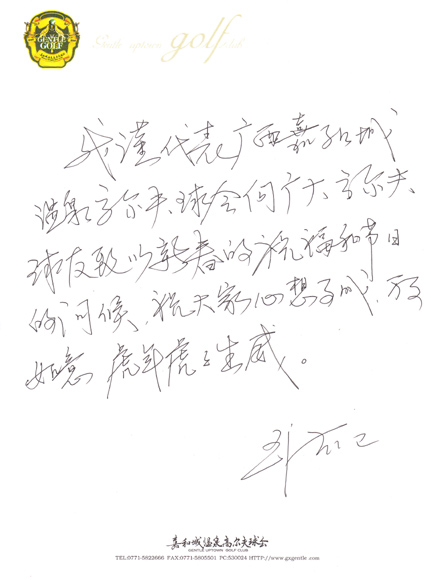 GENTLE
GOLF
Gentle uptown golf club
我谨代表广西嘉和城
温泉高尔夫球会向广大高尔夫
球友致以新春的祝福和节日
的问候,祝大家心想事成,万事
如意 虎年虎虎生威。
嘉和城温泉高尔夫球会
GENTLE UPTOWN GOLF CLUB
TEL:0771-5822666 FAX:0771-5805501 PC:530024 HTTP://www.gxgentle.com